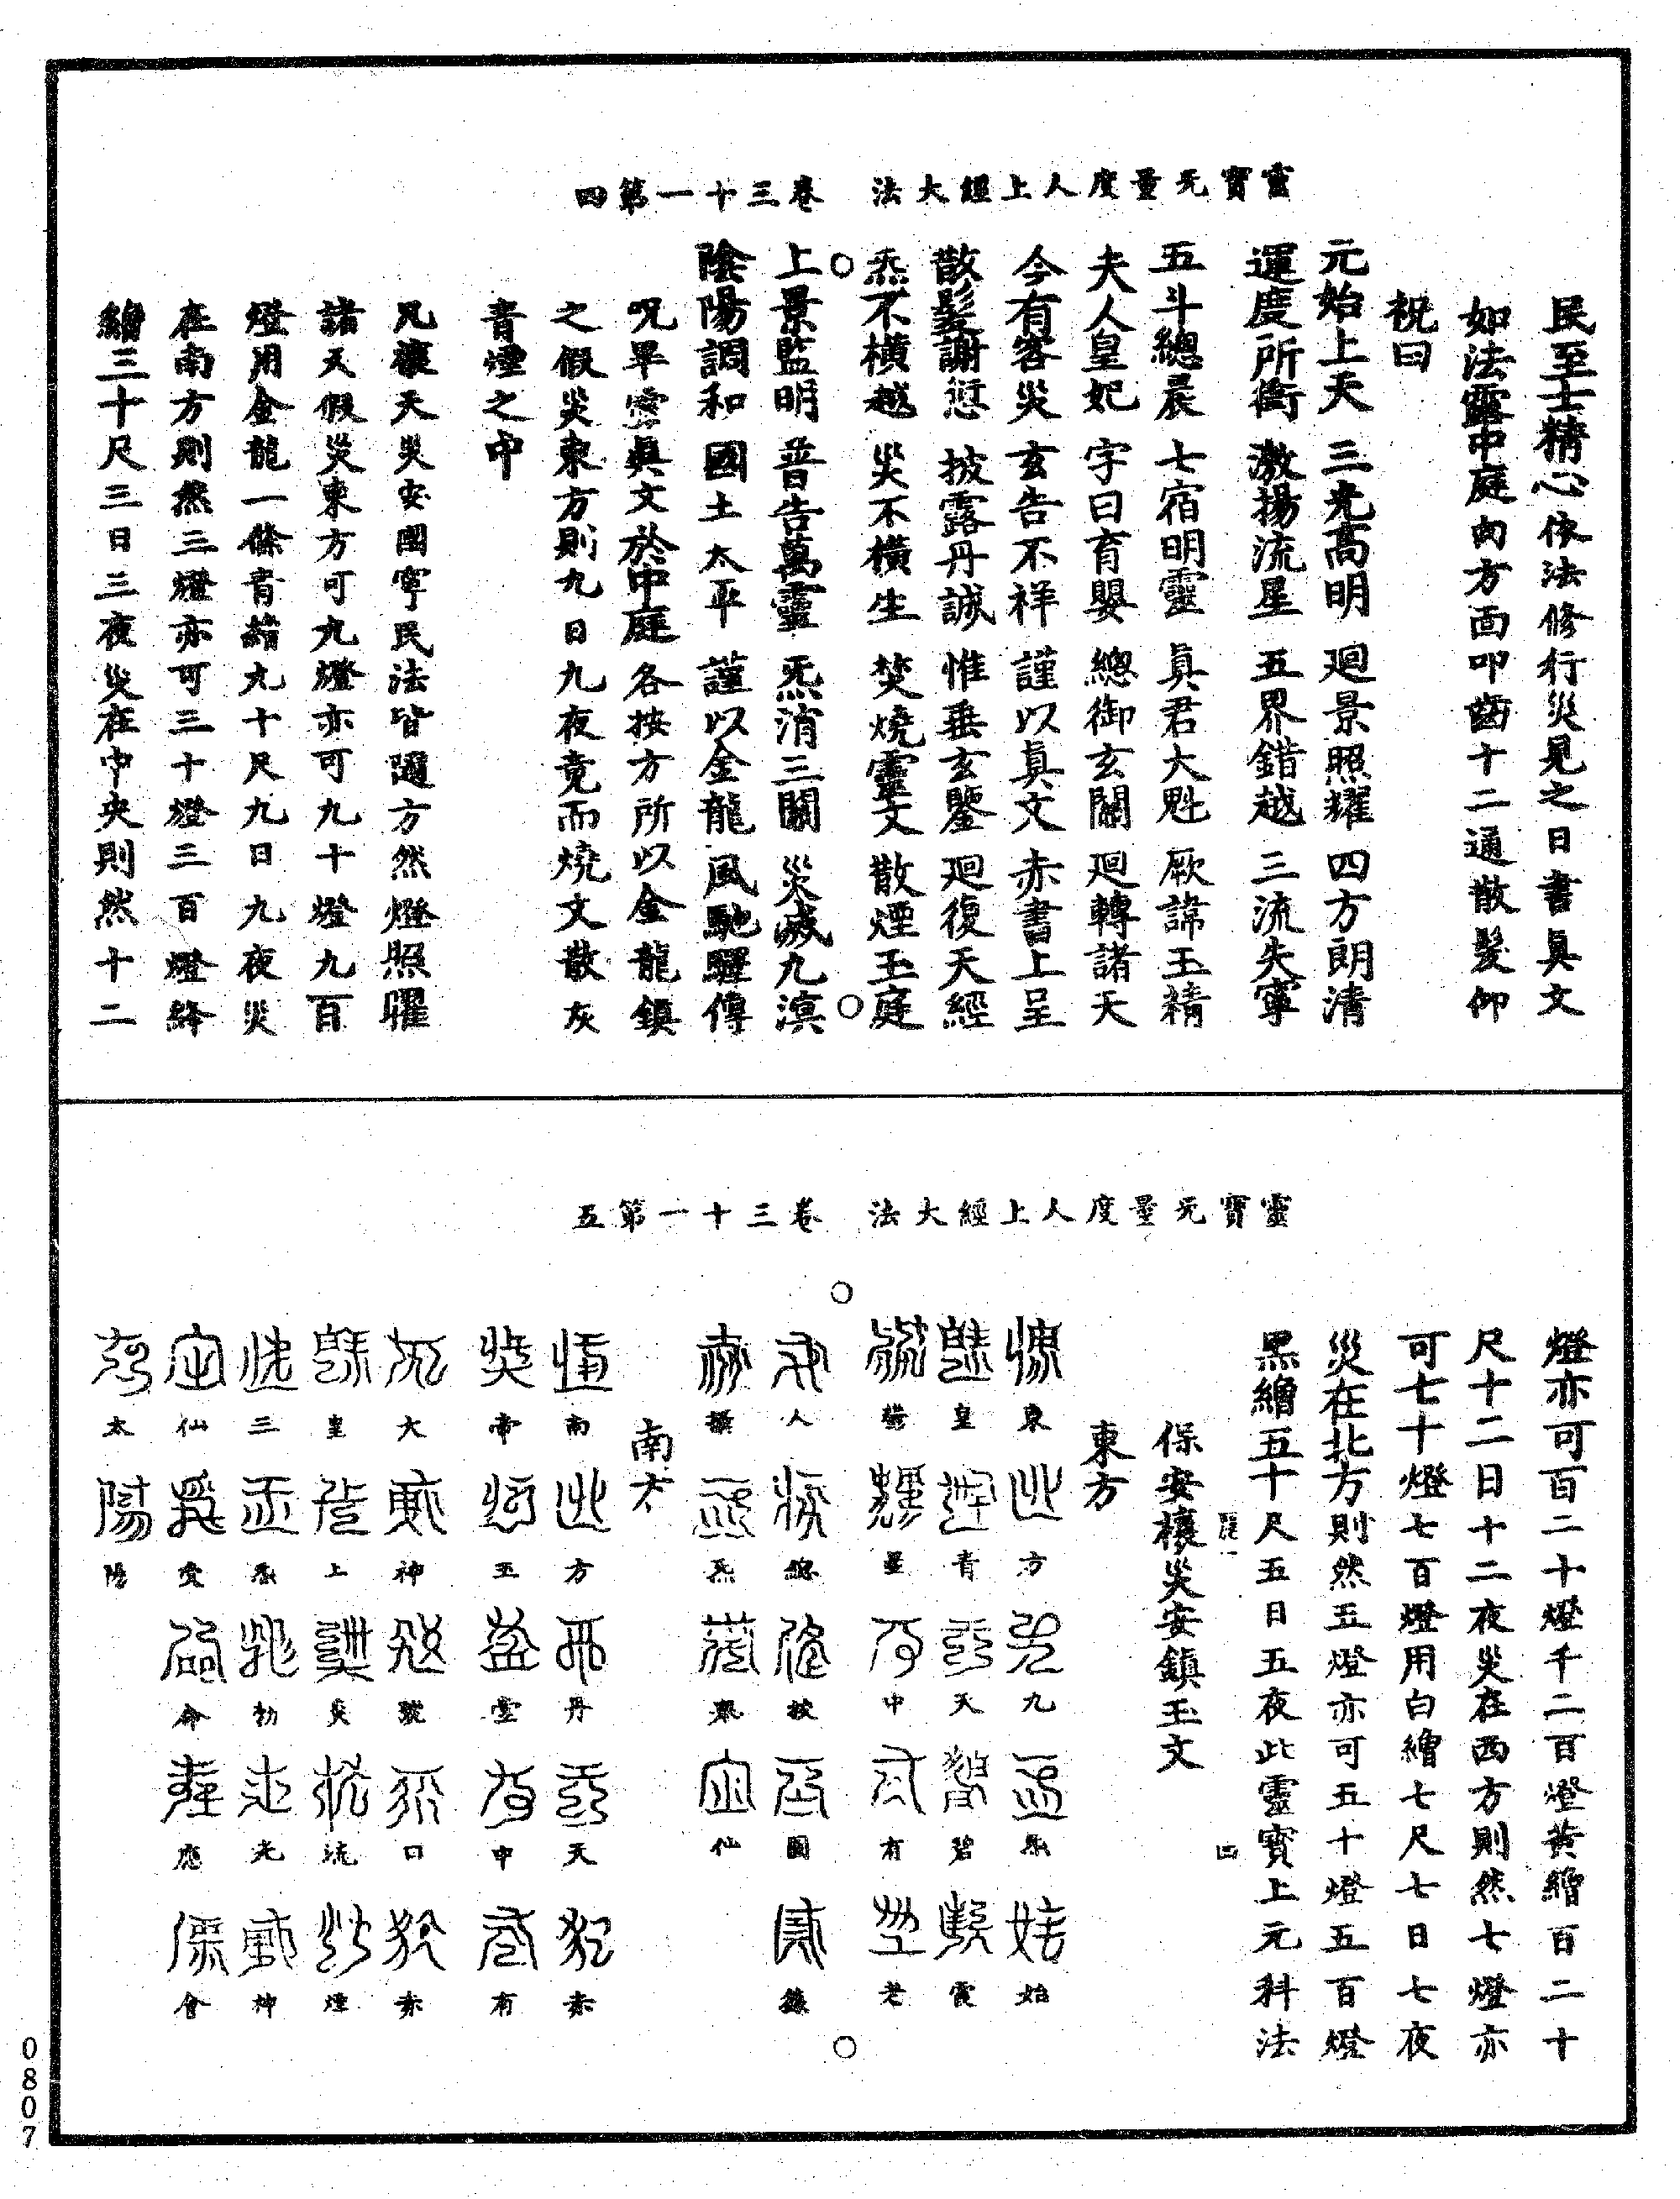 靈寶无量度人上經大法　卷三十一第四
民至士精心依法修行災見之日書眞文
如法露中庭向方面叩齒十二通散髮仰
祝曰
元始上天　三光高明　廻景照耀　四方朗清
運度所衝　激揚流星　五界錯越　三流失寧
五斗總晨　七宿明靈　眞君大魁　厥諱玉精
夫人皇妃　字曰育嬰　總御玄關　廻轉諸天
今有客災　玄告不祥　謹以眞文　赤書上呈
散髮謝愆　披露丹誠　惟垂玄鑒　廻復天經
炁不橫越　災不橫生　焚燒靈文　散煙玉庭
上景監明　普告萬靈　炁消三關　災滅九溟
陰陽調和　國土太平　謹以金龍　風馳驛傳
呪畢靈眞文於中庭各按方所以金龍鎮
之假災東方則九日九夜竟而燒文散灰
青煙之中
凡禳天災安國寧民法皆隨方然燈照曜
諸天假災東方可九燈亦可九十燈九百
燈用金龍一條青繒九十尺九日九夜災
在南方則然三燈亦可三十燈三百燈絳
繒三十尺三日三夜災在中央則然十二
靈寶无量度人上經大法　卷三十一第五
燈亦可百二十燈千二百燈黃繒百二十
尺十二日十二夜災在西方則然七燈亦
可七十燈七百燈用白繒七尺七日七夜
災在北方則然五燈亦可五十燈五百燈
黑繒五十尺五日五夜此靈寶上元科法
保安禳災安鎮玉文
東方
東方九炁始
皇青天碧霞
星中有老
人總披圖籙
攝炁聚仙
南方
南方丹天赤
帝玉堂中有
大神號曰赤
皇上炎流煙
三炁勃光神
仙受命應會
太陽
0807